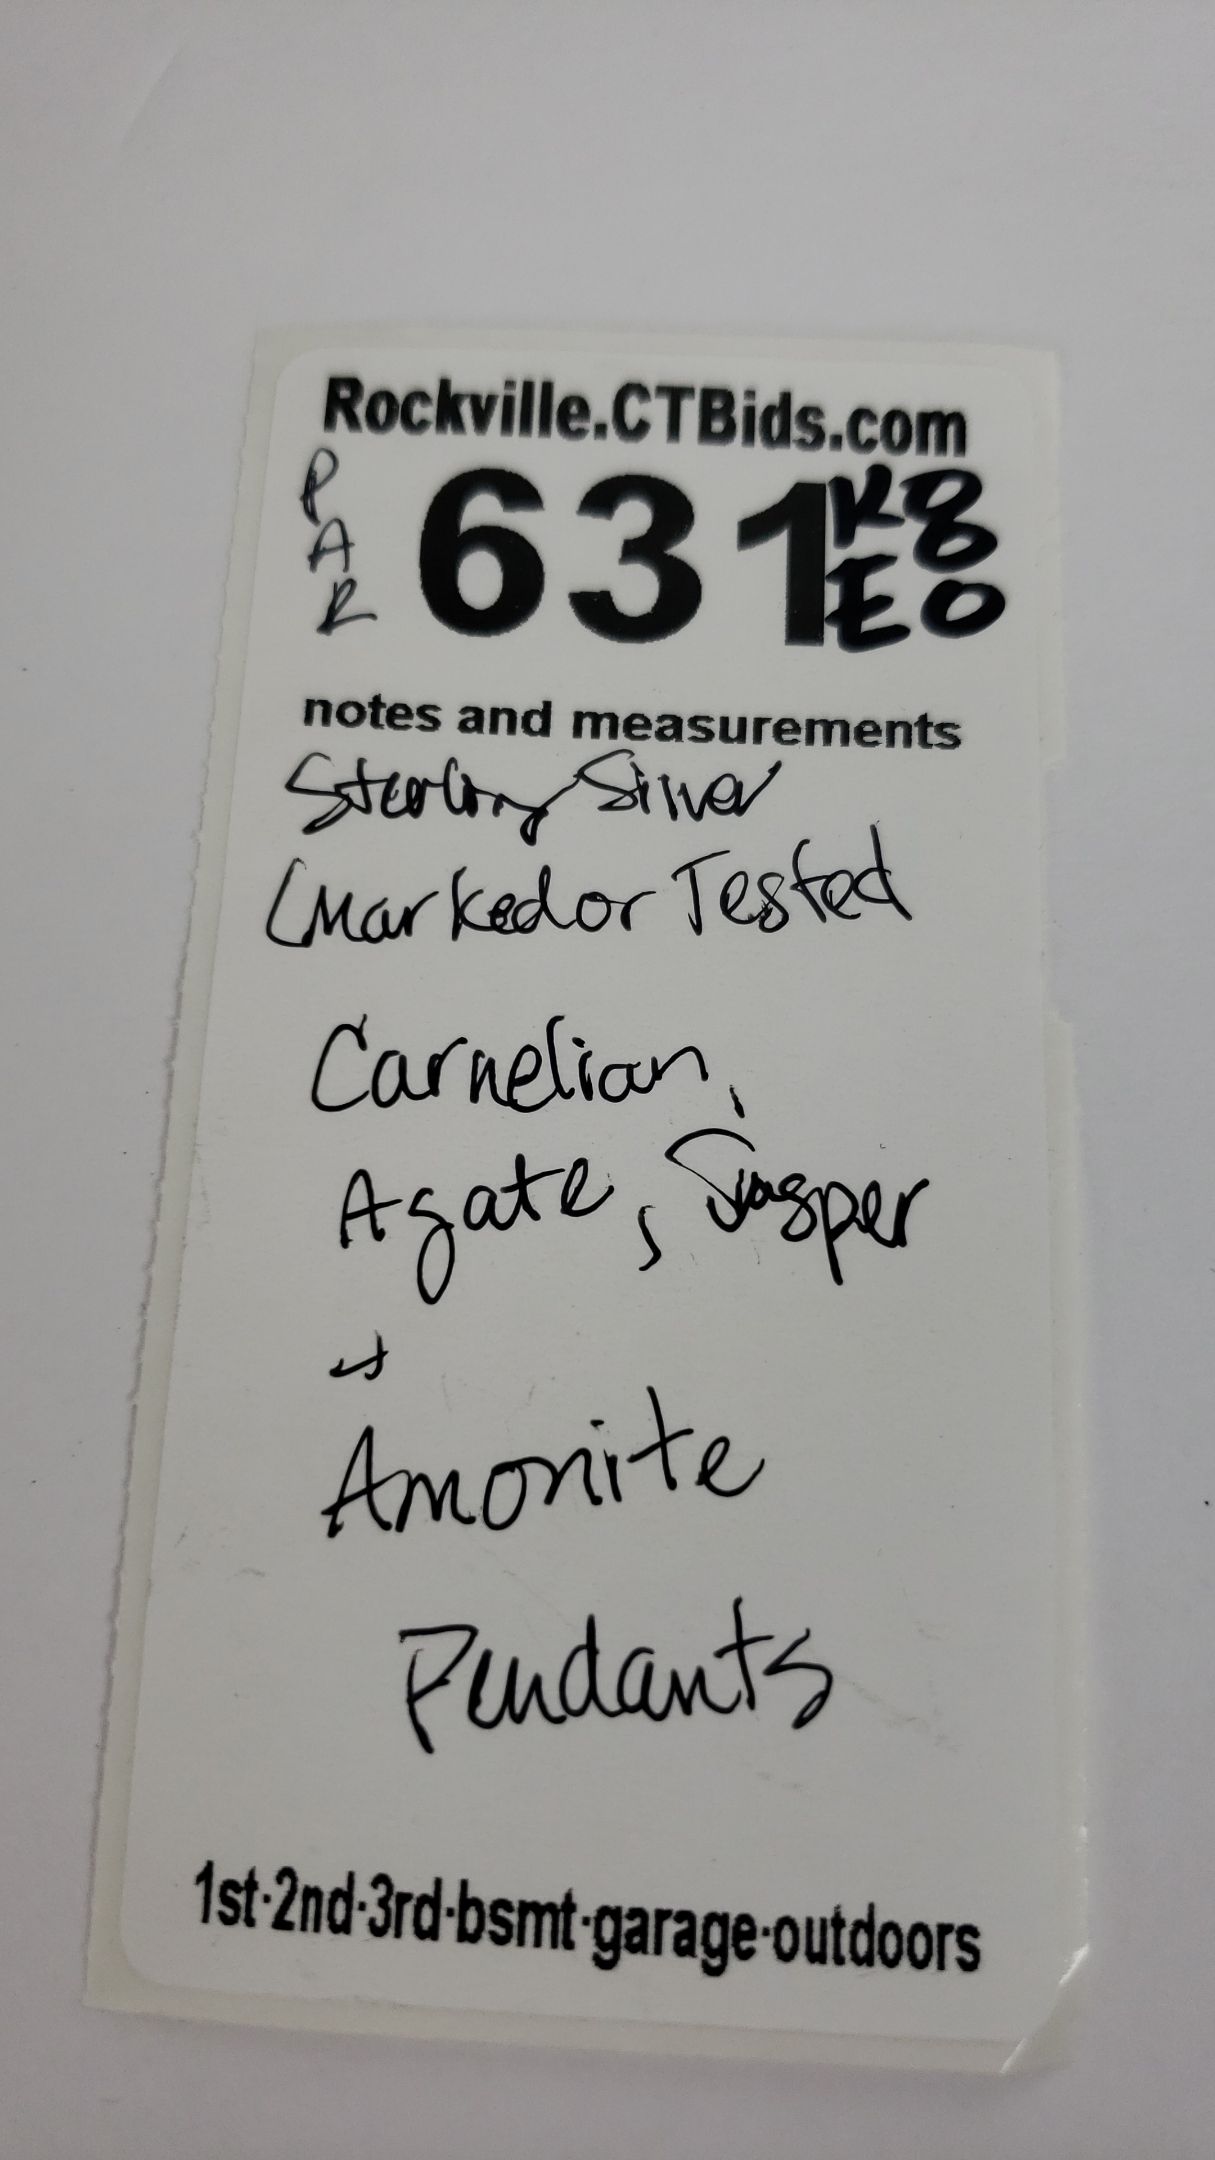 Rockville.CTBids.com
PAR
631
K8
EO
notes and measurements
Sterling Silver
(Marked or Tested
Carnelian,
Agate, Jasper
+
Amonite
Pendants
1st·2nd·3rd·bsmt·garage·outdoors